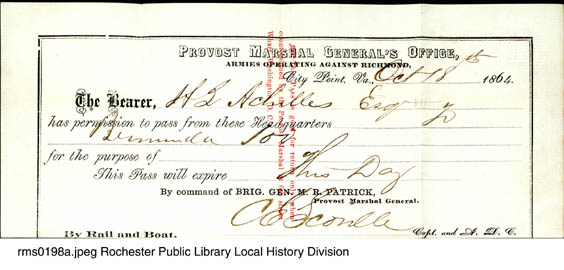 Provost Marshal General's Office,
ARMIES OPERATING AGAINST RICHMOND,
City Point, Va., Oct 18th 1864.
The Bearer, H L Achilles Esq Jr
has permission to pass from these Headquarters
Bermuda 100
for the purpose of
This Pass will expire This Day
By command of BRIG. GEN. M. R. PATRICK,
Provost Marshal General.
Capt. and A. D. C.
By Rail and Boat.
rms0198a.jpeg Rochester Public Library Local History Division